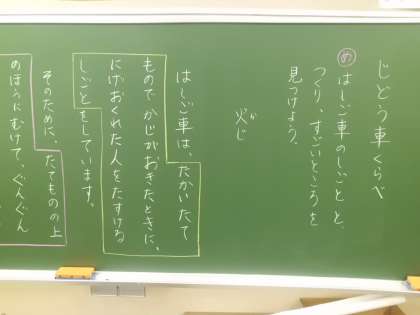 じどう車くらべ
め はしご車のしごとと、
つくり、すごいところを
見つけよう。
か
火じ
はしご車は、たかいたて
ものでかじがおきたときに、
にげおくれた人をたすける
しごとをしています。
そのために、たてものの上
のほうにむけて、ぐんぐん